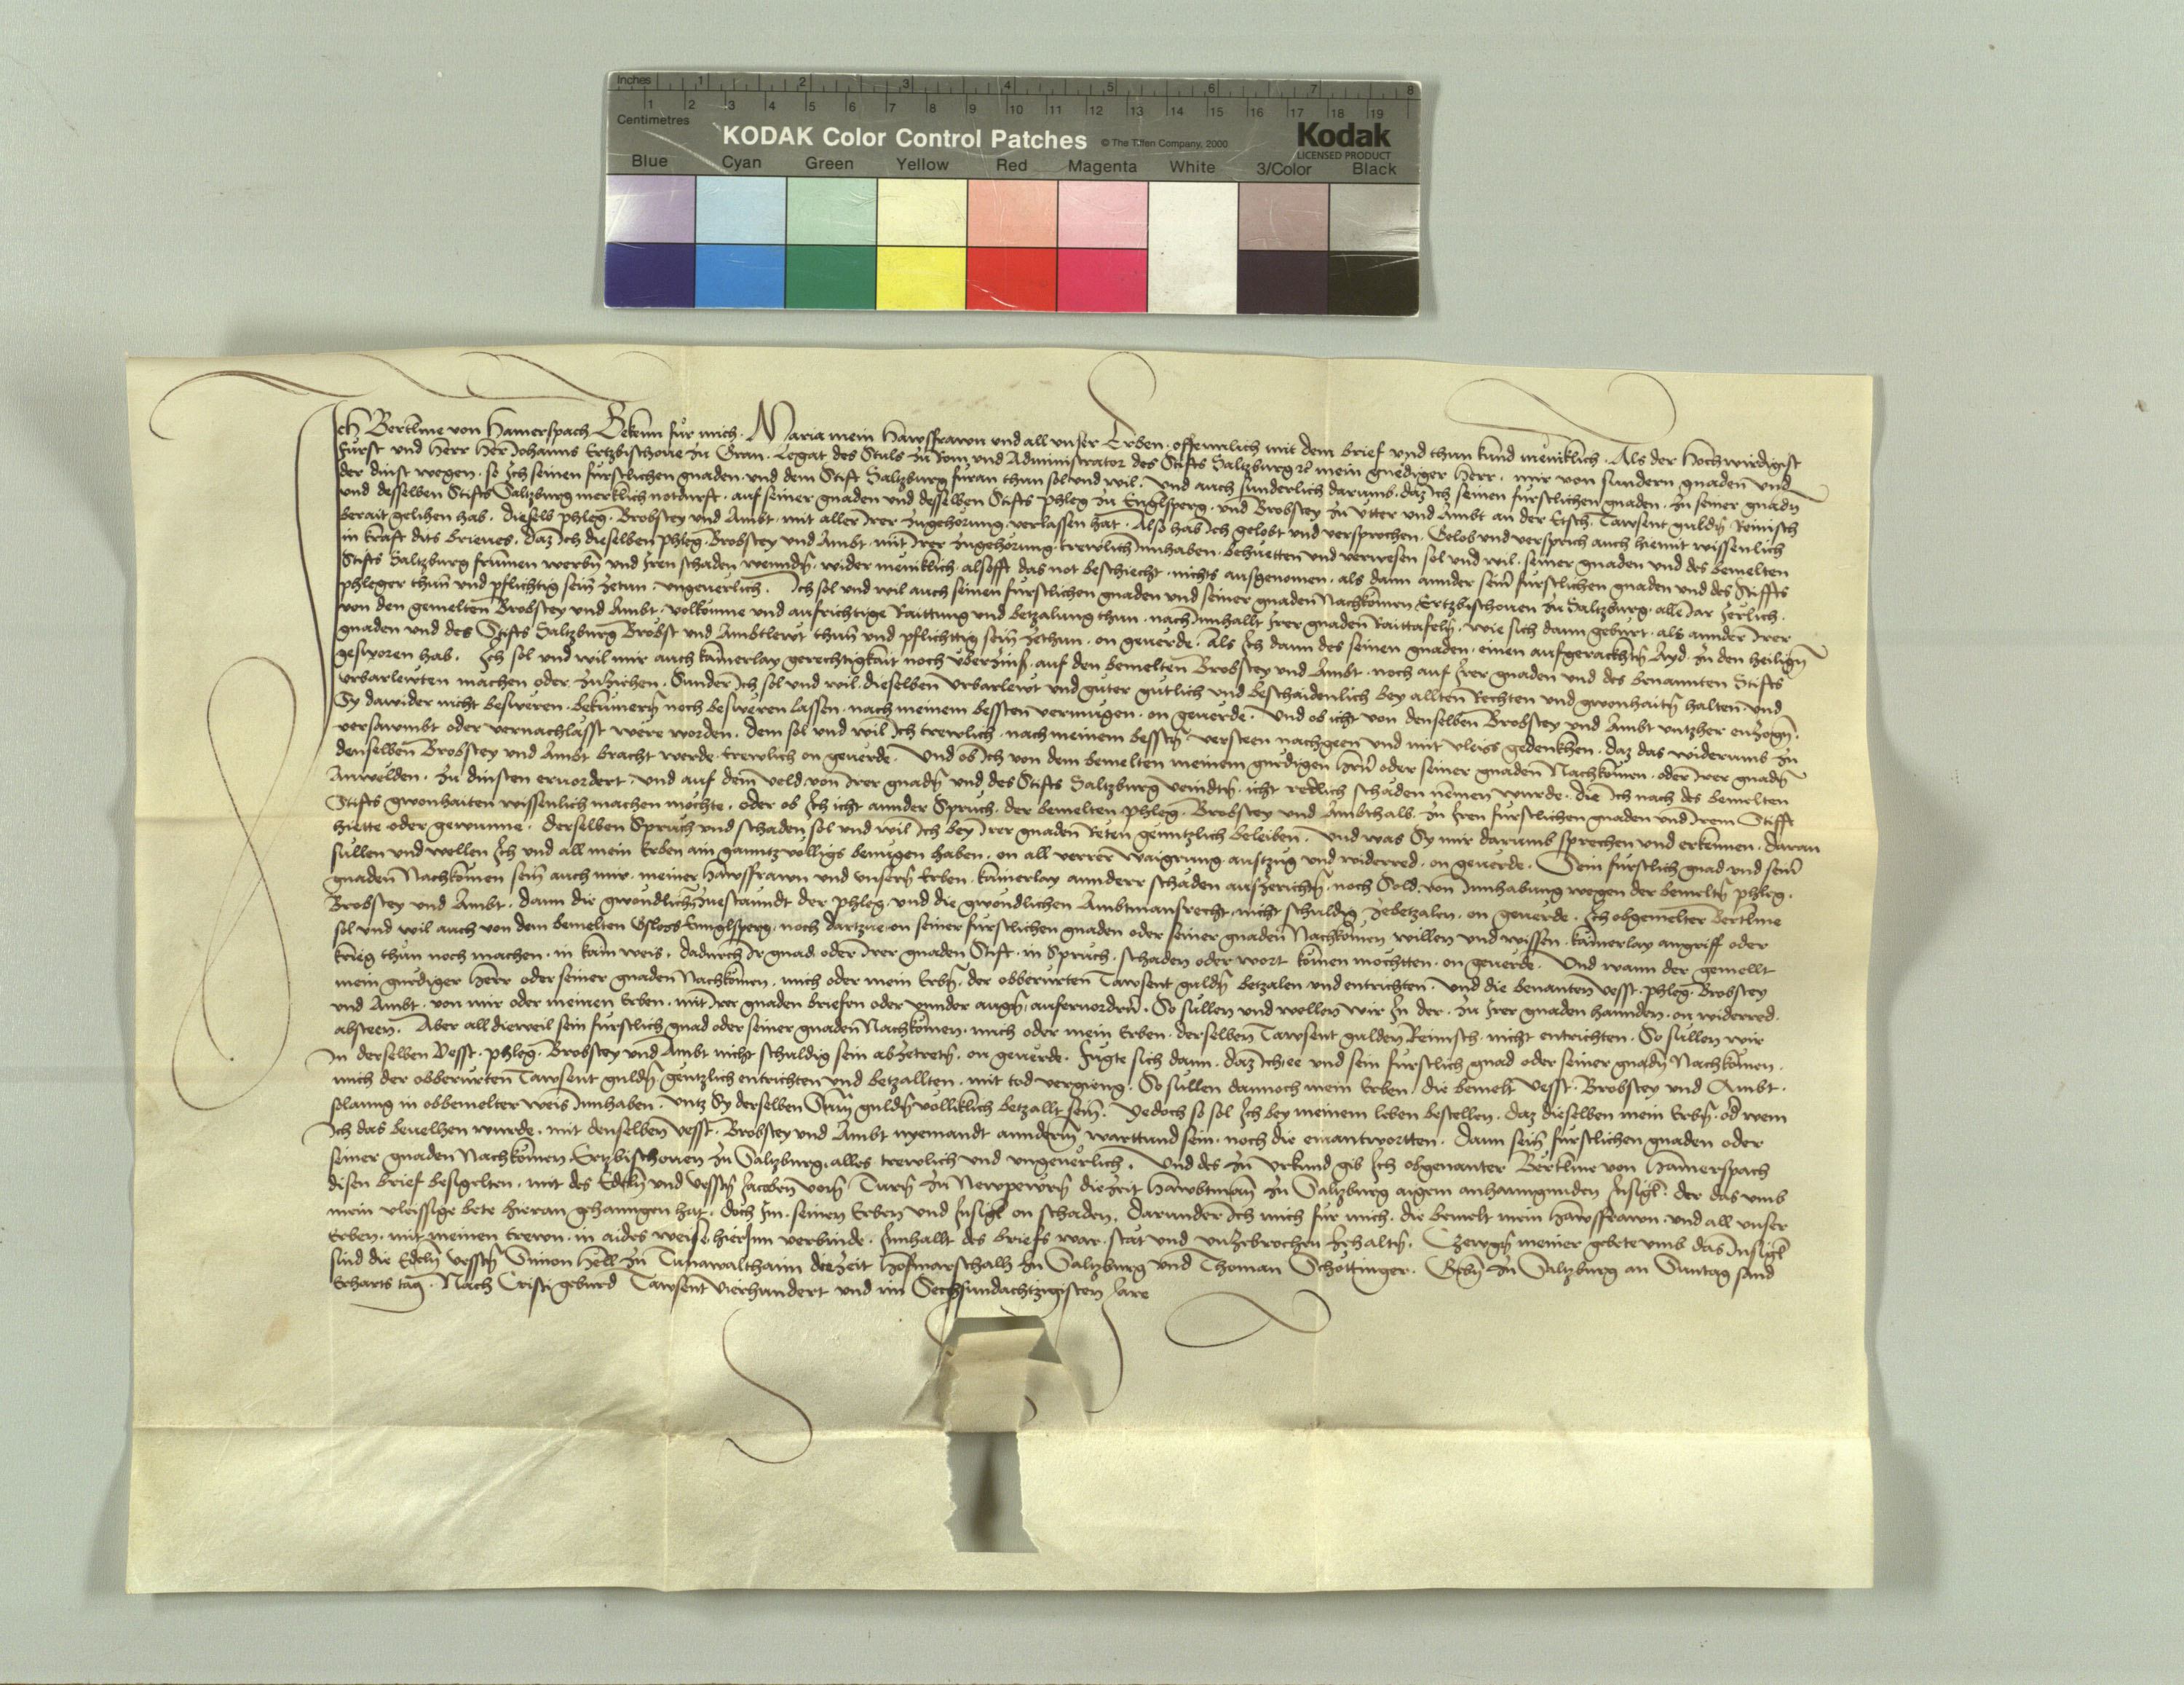 Inches 1 2 3 4 5 6 7 8
Centimetres 1 2 3 4 5 6 7 8 9 10 11 12 13 14 15 16 17 18 19
KODAK Color Control Patches © The Tiffen Company, 2000 Kodak
LICENSED PRODUCT
Blue Cyan Green Yellow Red Magenta White 3/Color Black
Ich Bertlme von Hamerspach Bekenn fur mich. Maria mein Hawsfrawn und all unser Erben. offennlich mit dem brief vnd thun kund meniklich. Als der Hochwirdigist
Furst und Herr Her Johanns Ertzbischoue zu Gran. Legat des Stuls zu Rom und Administrator des Stifts Saltzburg mein gnediger Herr. mir von sundern gnaden und
der dinst wegen. so Ich seinen furstlichen gnaden. und dem Stift Saltzburg furan thun sol und wil. Und auch sunderlich darumb. daz Ich seinen furstlichen gnaden. zu seiner gnadn
und desselben Stifts Saltzburg mercklich notdurft. auf seiner gnaden und desselben Stifts phleg zu Englsperg. und Brobstey zu Utter und Ambt an der Etsch. Tawsent guldn Reinisch
berait gelihen hab. dieselb phleg. Brobstey und Ambt. mit aller Irer zugehorung. verlassen hat. Also hab Ich gelobt und versprochen. Gelob und versprich auch hiemit wissenlich
in kraft dits brieues. daz Ich dieselben phleg. Brobstey und Ambt. mit Irer zugehorung. trewlich Innhaben. behuetten und verwesen sol und wil. seiner gnaden und des bemelten
Stifts Saltzburg frumen werbn und Iren schaden wenndn. wider meniklich. alsofft das not beschiecht. nichts ausgenomen. als dann annder sein furstlichen gnaden und des Stiffts
phleger thun und pflichtig sein zetun. ungeuerlich. Ich sol und wil auch seinen furstlichen gnaden und seiner gnaden Nachkomen Ertzbischouen zu Saltzburg. alle Jar Jerlich.
von den gemelten Brobstey und Ambt. volkomne und aufrichtige Raittung und betzalung thun. nach Innhallt Irer gnaden Raittafeln. wie sich dann geburt. als annder Irer
gnaden und des Stifts Saltzburg Brobst und Ambtlewt thun und pflichttig sein zethun. on geuerde. Als Ich dann des seinen gnaden. einen aufgerackhtn Ayd. zu den heilign
gesworen hab. Ich sol und wil mir auch kainerlay gerechtigkait noch uberzins. auf den bemelten Brobstey und Ambt. noch auf Irer gnaden und des benannten Stifts
vrbarlewten machen oder zuziehen. Sunder Ich sol und wil. dieselben Vrbarlewt und guter gutlich und beschaidenlich bey allten Rechten und gwonhaitn halten und
Sy dawider nicht besweren. bekumern noch besweren lassen. nach meinem bessten vermugen. on geuerde. Und ob icht von denselben Brobstey und Ambt untzher entzogn.
versawmbt oder vernachlasst were worden. dem sol und wil Ich trewlich. nach meinem besstn versteen nachgeen und mit vleiss gedenkhen. daz das widerumb zu
denselben Brobstey und Ambt bracht werde. trewlich on geuerde. Und ob Ich von dem bemelten meinem gnedigen Hrn oder seiner gnaden Nachkomen. oder Irer gnadn
Anwelden. zu dinsten eruordert. und auf dem veld. von Irer gnadn und des Stifts Saltzburg veindtn. icht redlich schaden nemen wurde. die Ich nach des bemelten
Stifts gwonhaiten wissenlich machen mochte. oder ob Ich icht annder Spruch. der bemelten phleg. Brobstey und Ambthalb. zu Iren furstlichen gnaden und Irem Stifft
hiette oder gewunne. derselben Spruch und schaden sol und wil Ich bey Irer gnaden Reten genntzlich beleiben. und was Sy mir darumb sprechen und erkennen. daran
sullen und wollen Ich und all mein Erben ain ganntz volligs benugen haben. on all verrer Waigrung. ausztzug und widerred. on geuerde. Sein furstlich gnad und sein
gnaden Nachkomen sein auch mir. meiner Hawsfrawn und unsern Erben. kainerlay annderr schaden auszerichtn. noch Sold. von Innhabung wegen der bemeltn phleg.
Brobstey und Ambt. dann die gwondlichn zuestanndt der phleg. und die gwondlichen Ambtmansrecht. nicht schuldig zebetzalen. on geuerde. Ich obgemelter Bertlme
sol und wil auch von dem bemelten Gsloss Ennglsperg. noch dartzue. on seiner furstlichen gnaden oder seiner gnaden Nachkomen willen und wissen. kainerlay angriff oder
krieg thun noch machen. in kain weis. dadurch Ir gnad. oder Irer gnaden Stift. in Spruch. schaden oder wort komen mochtten. on geuerde. Und wann der gemellt
mein gnediger Herr oder seiner gnaden Nachkomen. mich oder mein Erbn. der obberurten Tawsent guldn betzalen und entrichten. Und die benanten Vesst. phleg. Brobstey
und Ambt. von mir oder meinen Erben. mit Irer gnaden briefen oder vnnder augn. aufeuordern. So sullen und wollen wir In der. zu Irer gnaden hannden. on widerred.
absteen. Aber all dieweil sein furstlich gnad oder seiner gnaden Nachkomen. mich oder mein Erben. derselben Tawsent gulden Reinisch. nicht entrichten. So sullen wir
In derselben Vesst. phleg. Brobstey und Ambt nicht schuldig sein abzetretn. on geuerde. Fugte sich dann. daz Ich ee und sein furstlich gnad oder seiner gnadn Nachkomen.
mich der obberurten Tawsent guldn gentzlich entrichten und betzallten. mit tod vergieng. So sullen dannoch mein Erben. die bemelt Vesst. Brobstey und Ambt.
solanng in obbemelter weis Innhaben. untz Sy derselben Sum guldn volliklich betzallt sein. Yedoch so sol Ich bey meinem leben bestellen. daz dieselben mein Erbn. od wem
Ich das beuelhen wurde. mit denselben Vesst. Brobstey und Ambt nyemandt annderm warttund sein. noch die einantwortten. dann sein furstlichen gnaden oder
seiner gnaden Nachkomen Ertzbischouen zu Saltzburg. alles trewlich und ungeuerlich. Und des zu Urkund gib Ich obgenanter Bertlme von Hamerspach
disen brief besigelten. mit des Edeln und Vesstn Jacoben vom Turn zu Newpewrn diezeit Hawbtman zu Saltzburg aigem anhanngunden Insigl. der das umb
mein vleissige bete hieran gehanngen hat. doch Im. seinen Erben und Insigl on schaden. darunder Ich mich fur mich. die bemelt mein Hawsfrawn. und all unser
Erben. mit meinen trewn. in aides weise. hierinn verbinde. Innhallt des briefs war. stat und unzebrochen zehaltn. Zewgn meiner gebete umb das Insigl
sind die Edeln Vesstn Simon Hell zu Tunawalthaim diezeit Hofmarschalh zu Saltzburg und Thoman Schottinger. Gebn zu Saltzburg an Suntag sand
Erharts tag. Nach Cristi geburd Tawsent vierhundert und im Sechsundachtzigisten Jare